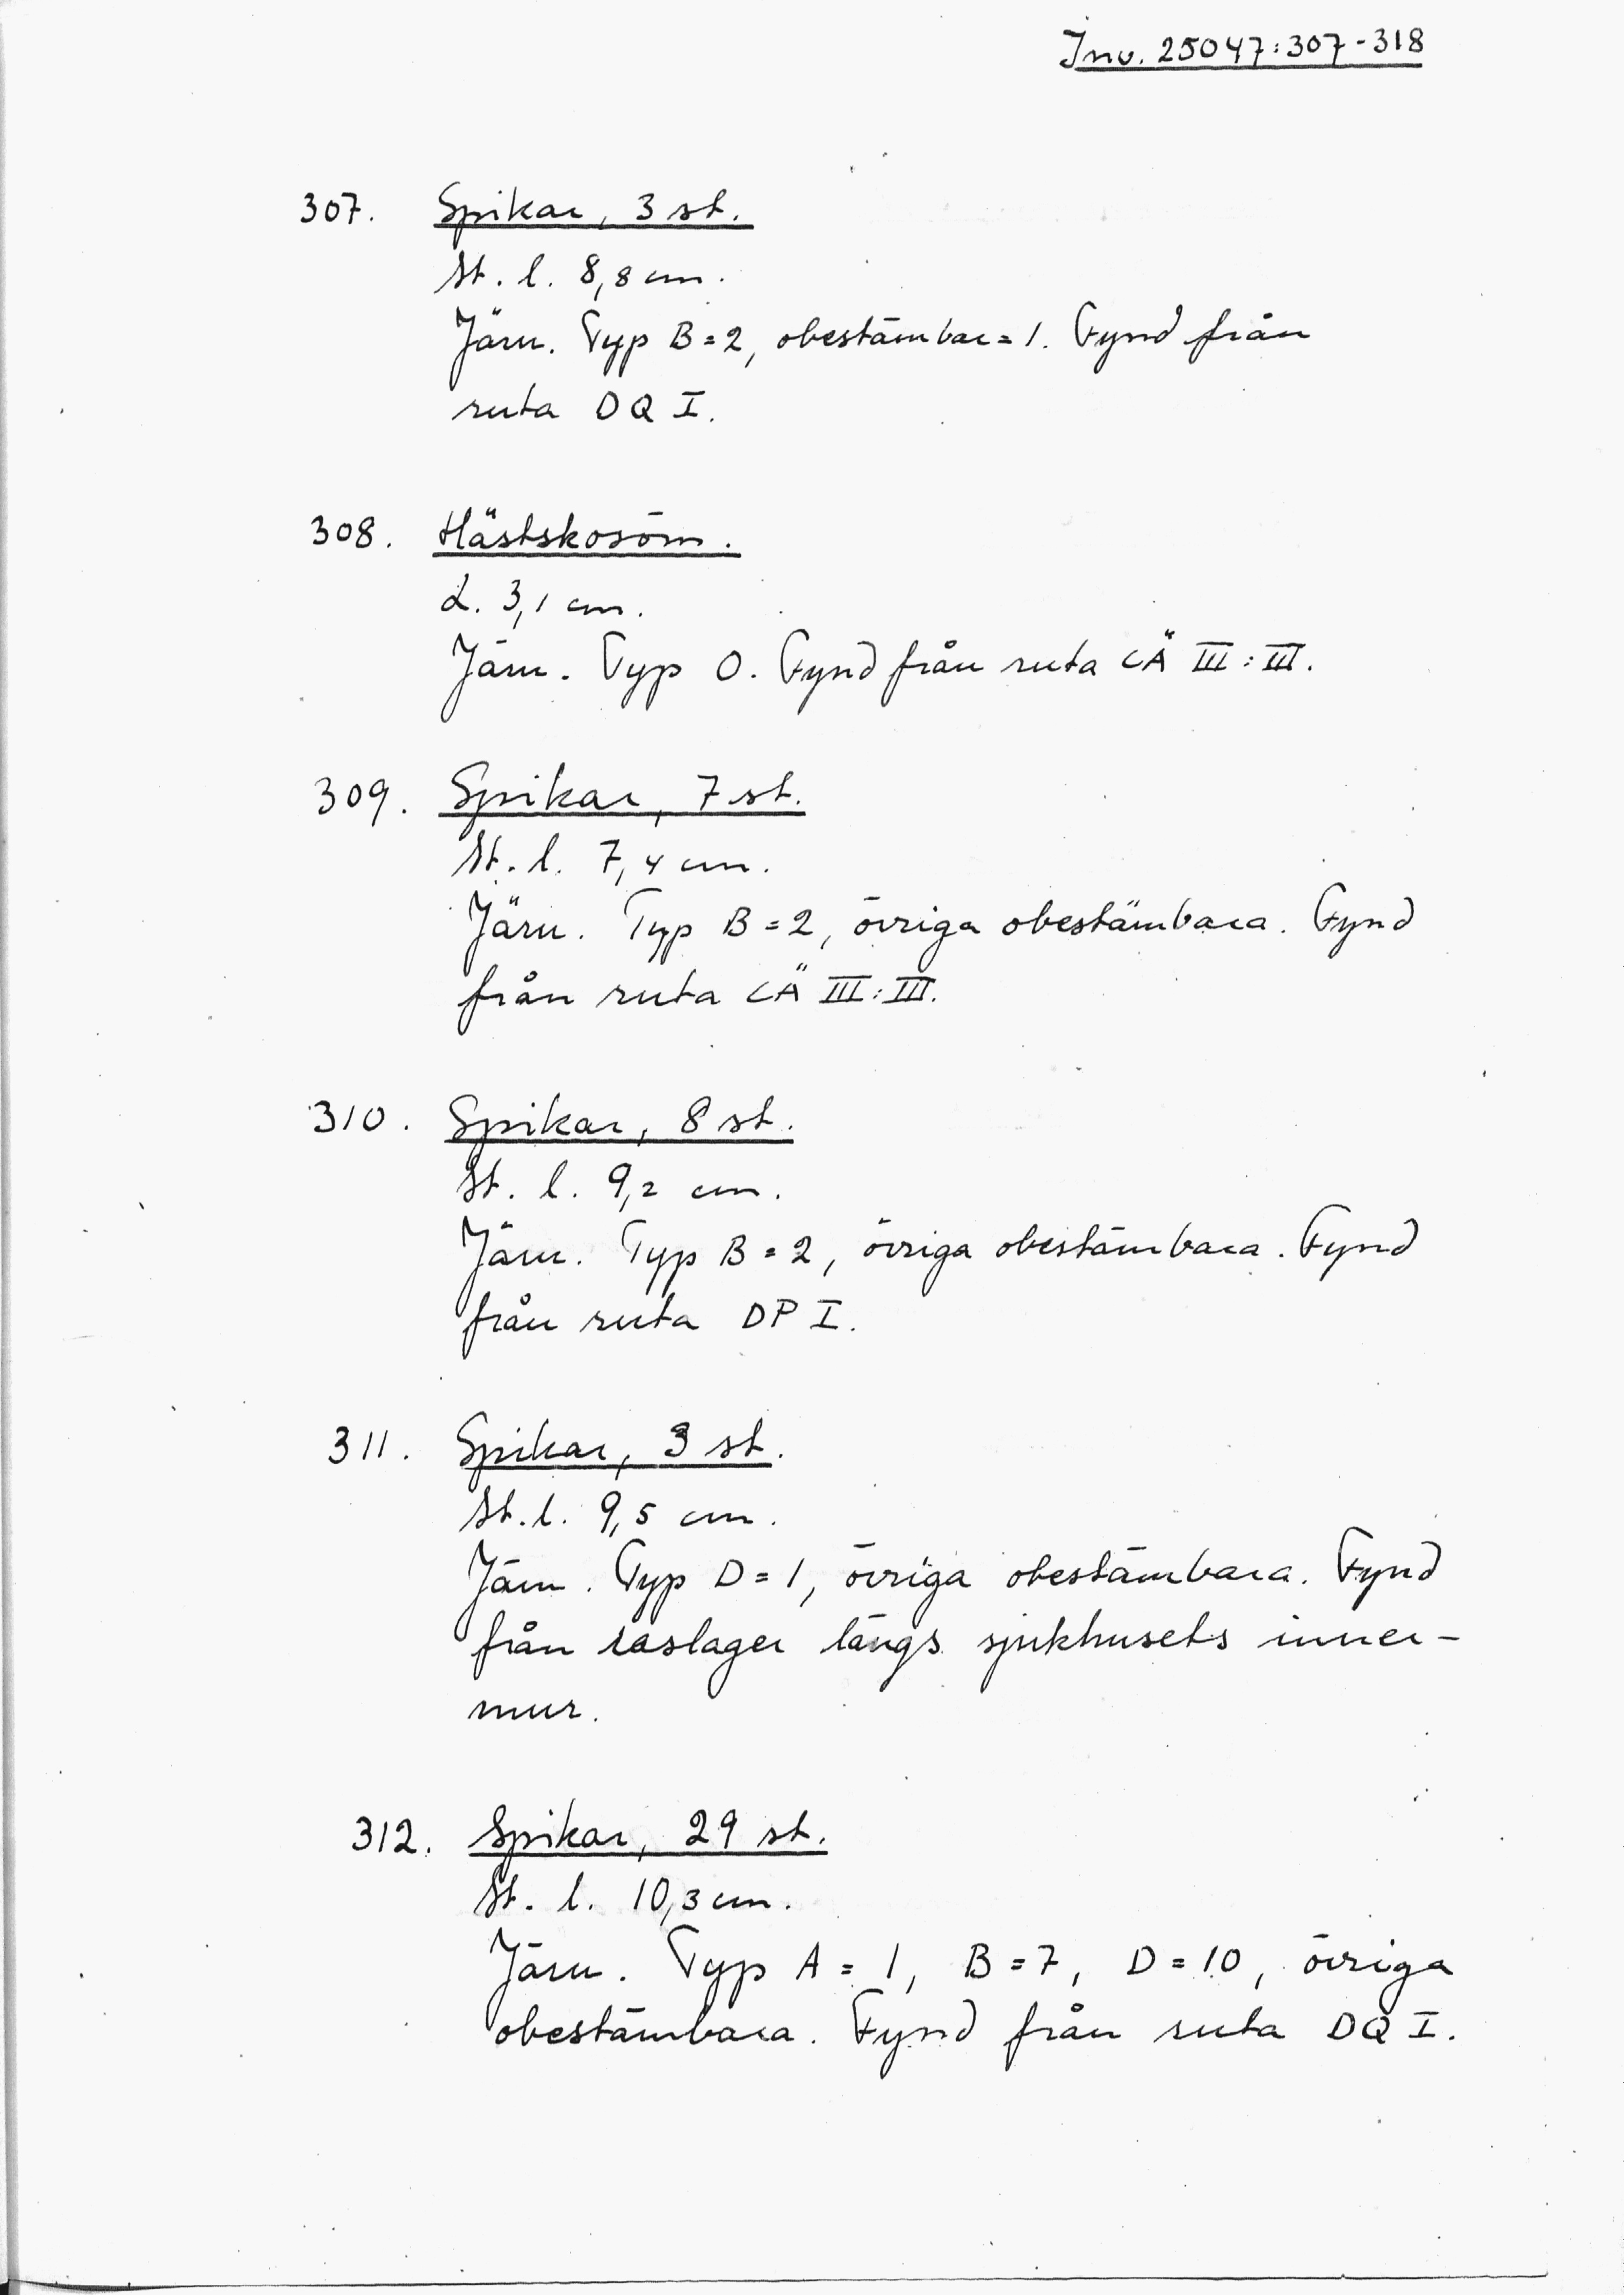 Inv. 25047:307-318
307. Spikar, 3 st.
St. l. 8,8 cm.
Järn. Typ B=2, obestämbar=1. Fynd från
ruta DQ I.
308. Hästskosöm.
L. 3,1 cm.
Järn. Typ O. Fynd från ruta CÄ III:III.
309. Spikar, 7 st.
St. l. 7,4 cm.
Järn. Typ B=2, övriga obestämbara. Fynd
från ruta CÄ III:III.
310. Spikar, 8 st.
St. l. 9,2 cm.
Järn. Typ B=2, övriga obestämbara. Fynd
från ruta DP I.
311. Spikar, 3 st.
St. l. 9,5 cm.
Järn. Typ D=1, övriga obestämbara. Fynd
från raslager längs sjukhusets inner-
mur.
312. Spikar, 29 st.
St. l. 10,3 cm.
Järn. Typ A=1, B=7, D=10, övriga
obestämbara. Fynd från ruta DQ I.